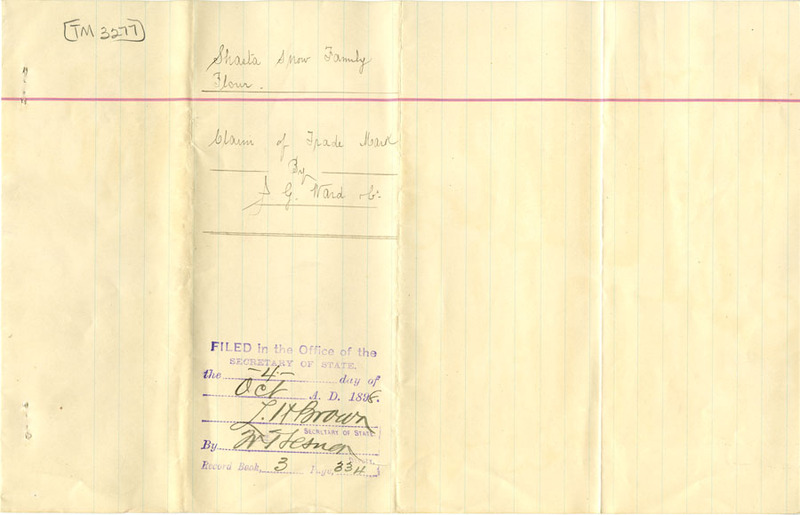 TM 3277
Shasta Snow Family
Flour.
Claim of Trade Mark
By
J G. Ward & Co.
FILED in the Office of the
SECRETARY OF STATE,
the -4- day of
Oct A. D. 1898.
L. H Brown
SECRETARY OF STATE
By
Record Book, 3 Page, 334